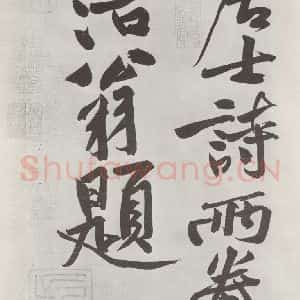 居士詩兩卷
涪翁題
Shufawang.CN